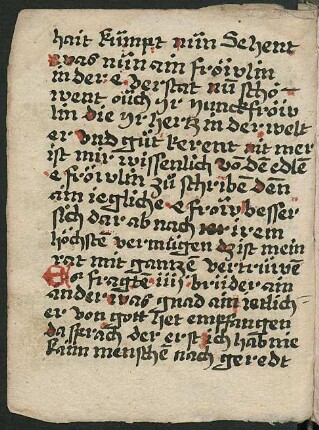 hait kumpt nün Sehent
was nün am fröwlin
in der e verstat nü scho
went öuch ir junckfröw
lin die ir hertz in der welt
er vnd güt kerent nit mer
ist mir wissenlich vo dē edlē
e fröwlin zü schribē dēn
am iegliche e fröw besser
sich dar ab nach irem
höchstē vermügen dz ist mein
rat mit gantzē vertrüwē
Es fragtē iiij brüder am
ander was gnad am ietlich
er von gott het empfangen
da sprach der erst ich hab nie
kaim menschē nach geredt